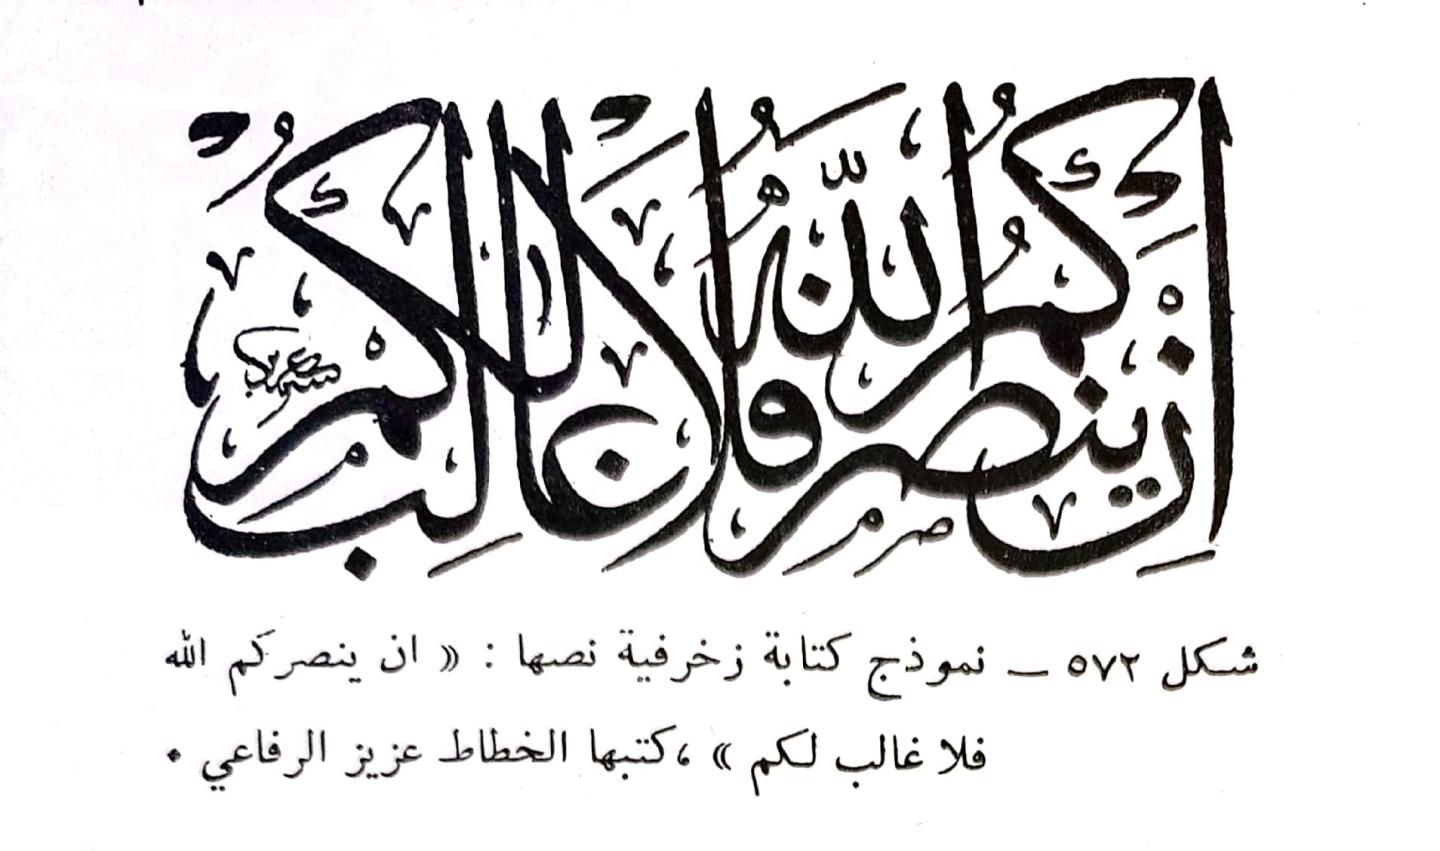 ان ينصركم الله فلا غالب لكم
شكل ٥٧٢ — نموذج كتابة زخرفية نصها : « ان ينصركم الله
فلا غالب لكم » ، كتبها الخطاط عزيز الرفاعي .